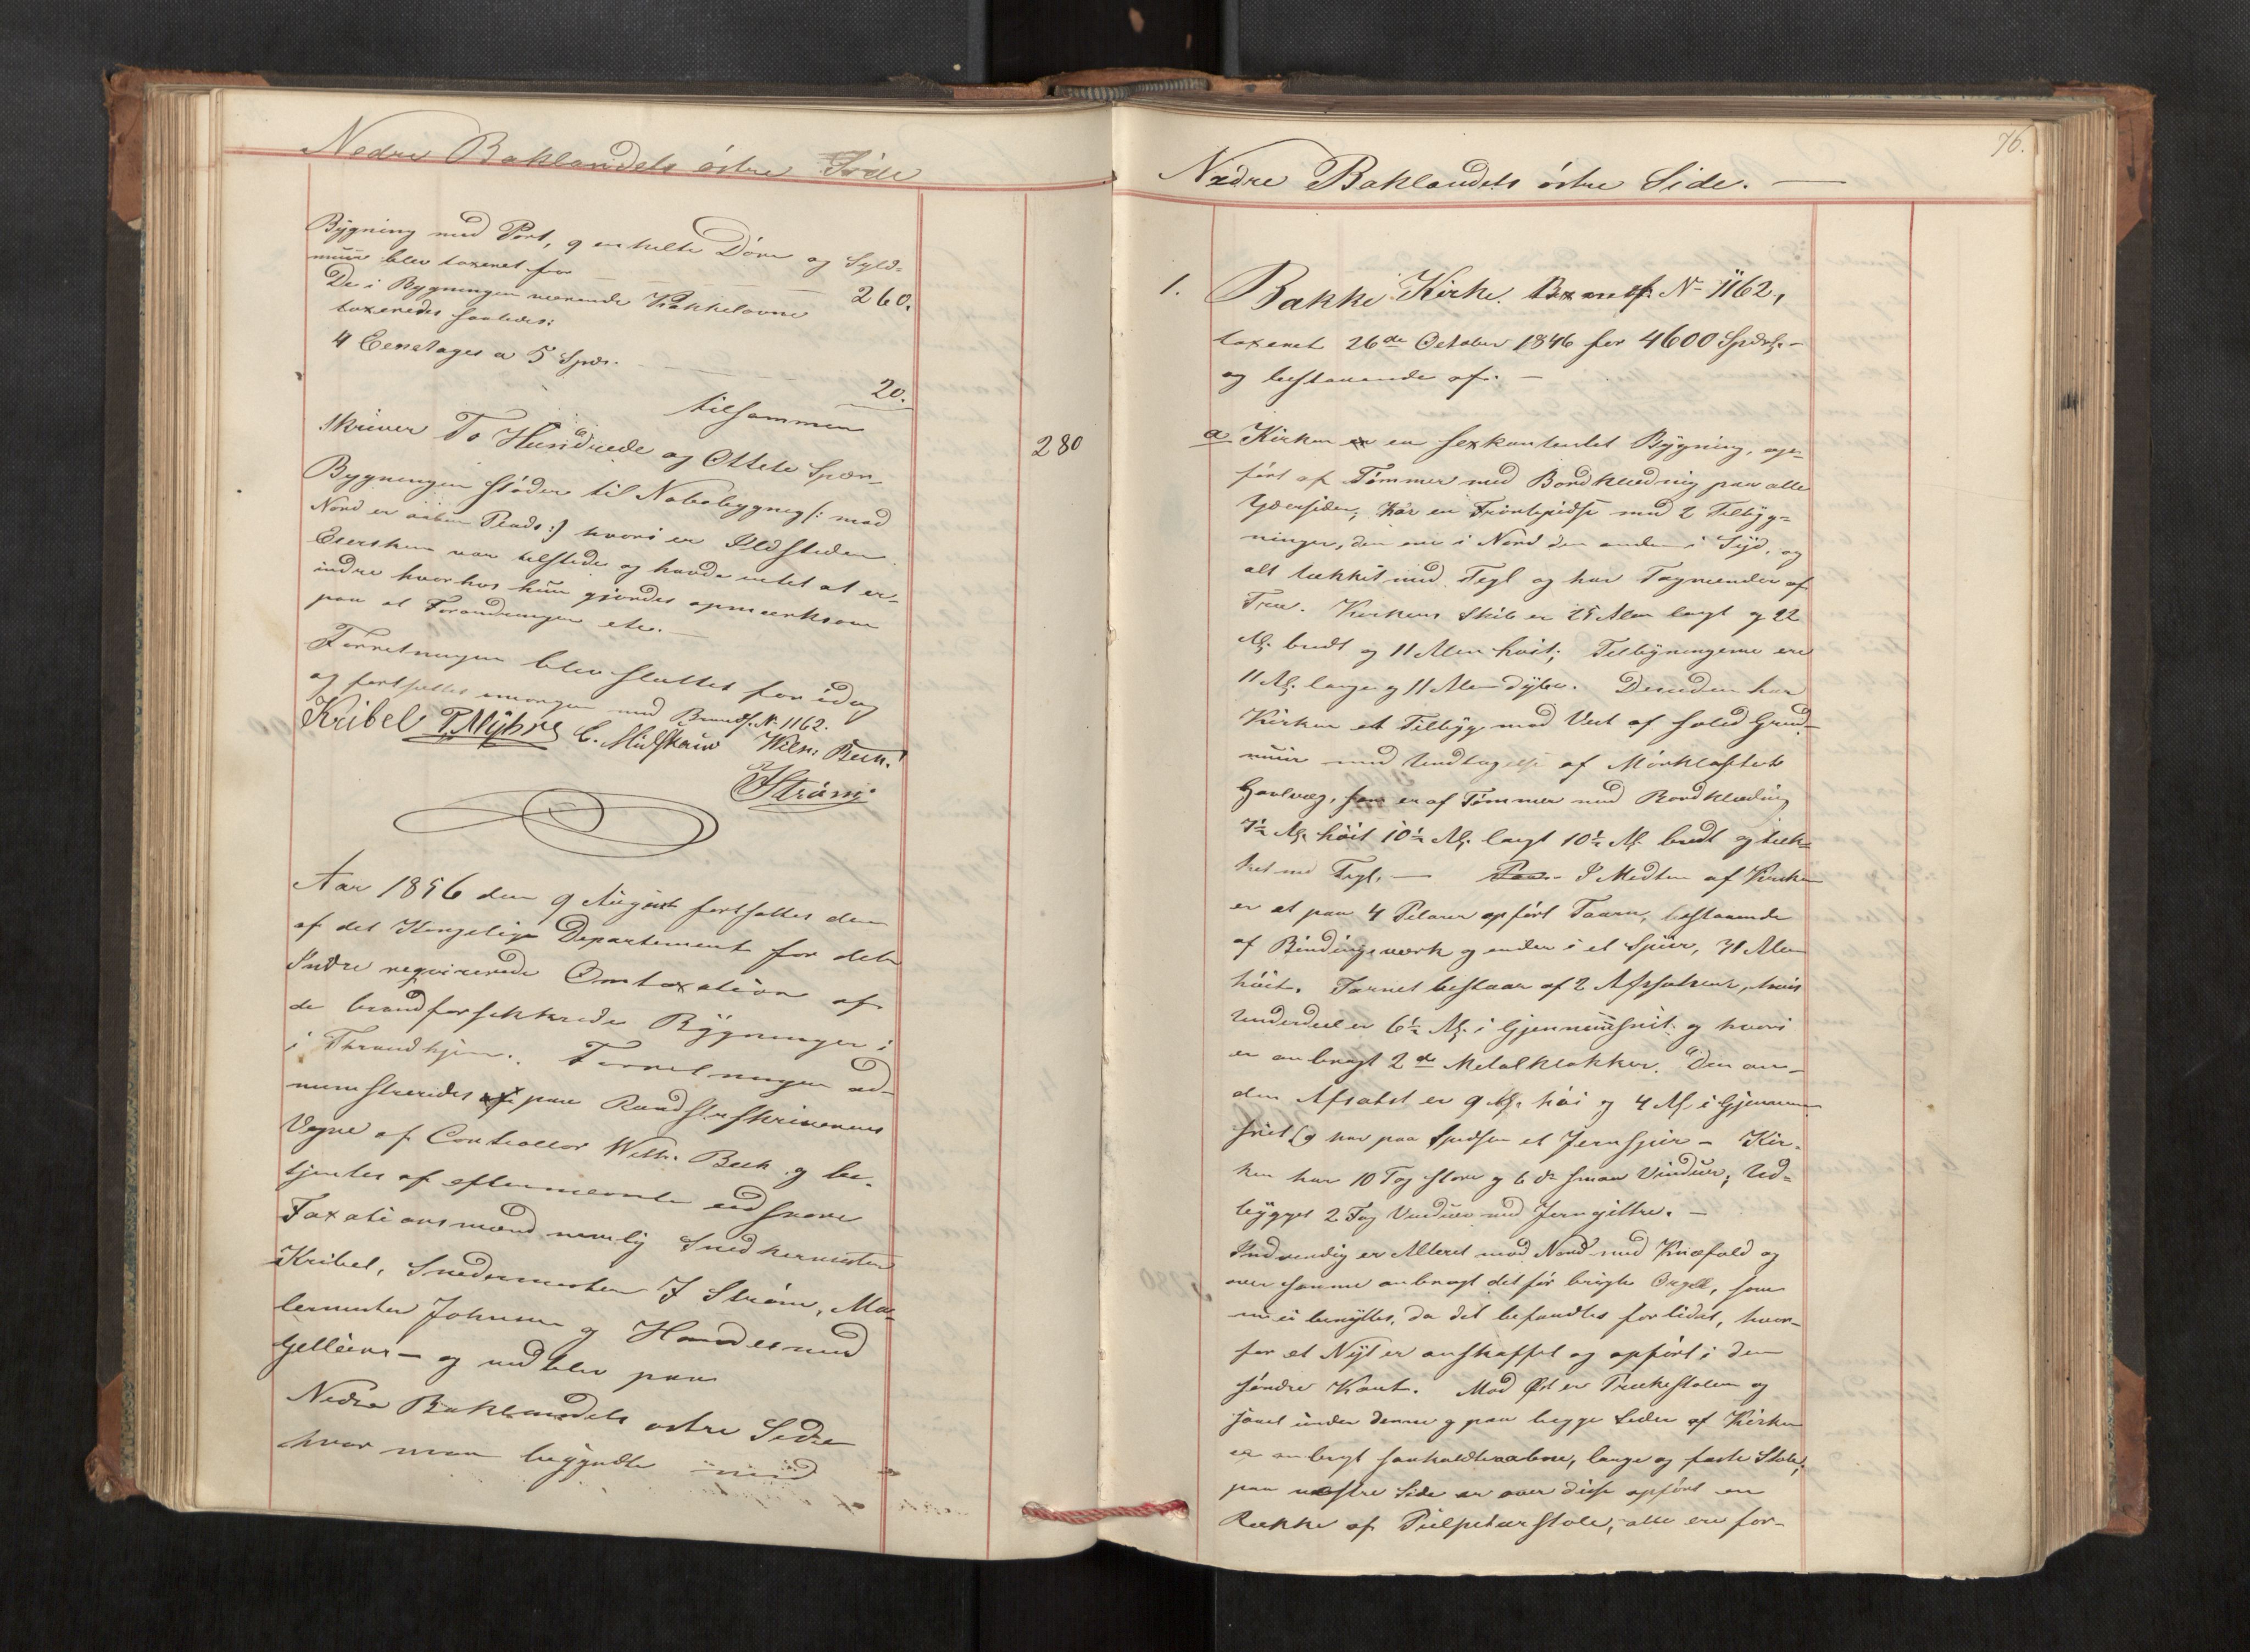 Nedre Baklandets östre Side
Bÿgning med Port, 9 enkelte Döre og Sÿld-
muur blev taxeret for 260.
De i Bygningen værende Kakkelovne
taxeredes saaledes:
4 Eenetages a 5 Spd.
20.
tilsammen
280
skriver To Hundrede og Ottete Spd.
Bygningen stöder til Nabobygning (: mod
Nord er aaben Plads :) hvori er Ildsteder
Eiersken var tilstede og havde intet at er-
indre hvorhos hun gjordes opmærksom
paa at Forandringer etc.
Forretningen blev sluttet for idag
og fortsættes imorgen med Brandf. No 1162.
Kribel P. Myhre C. Wilh. Beck.
J Ström
Aar 1856 den 9 August fortsattes den
af det Kongelige Departement for det
Indre requirerede Omtaxation af
de brandforsikkrede Bÿgninger i
i Throndhjem. Forretningen ad-
ministreredes af paa Raadstueskriverens
Vegne af Controllör Wilh. Beck og be-
tjentes af eftermeldte edsvorne
Taxationsmænd nemlig Snedkermester
Kribel, Snedkermester J Ström, Ma-
lermester Johnsen og Handelsmand
Gelleins – og urd blev paa
Nedre Baklandets östre Side
hvor man begyndte med
76.
Nedre Baklandets östre Side. —
1. Bakke Kirke. Brandf. No 1162,
taxeret 26de October 1846 for 4600 Spdlr. –
og bestaaende af: –
a Kirken er en sexkantedet Bÿgning, op-
fört af Tömmer med Bordklædning paa alle
Ydersider, har en Frontspidse med 2 Tilbÿg-
ninger, den ene i Nord den anden i Sÿd, og
alt tækket med Tegl og har Tagrender af
Træ. Kirkens Skib er 25 Alen langt og 22
Al. bredt og 11 Alen höit; Tilbÿgningerne ere
11 Al. lange og 11 Alen dÿbe. Desuden har
Kirken et Tilbÿg mod Vest af solid Grund-
muur med Undtagelse af Mörkloftets
Gavlvæg, som er af Tömmer med Bordklædning
7½ Al. höit 10½ Al. langt 10½ Al. bredt og tæk-
ket med Tegl. — Paa I Midten af Kirken
er et paa 4 Pilarer opfört Taarn, bestaaende
af Bindingsværk og ender i et Spiir, 31 Alen
höit. Tarnet bestaar af 2 Afsatser, hvis
Underdeel er 6½ Al. i Gjennemsnit og hvori
er anbragt 2de Metalklokker. Den an-
den Afsats er 9 Al. höi og 4 Al. i Gjennem-
snit og har paa Spidsen et Jernspir – Kir-
ken har 10 Fag store og 6 do smaa Vinduer; Ud-
bÿgget 2 Fag Vinduer med Jerngittre. –
Indvendig er Alteret mod Nord med Knæfald og
over samme anbragt det för brugte Orgell, som
nu ei benÿttes, da det befandtes for lidet, hvor-
for et Nÿt er anskaffet og opfört i den
söndre Kant. Mod Öst er Prækestolen og
samt under denne og paa begge Sider af Kirken
er anbragt saakaldte aabne, lange og faste Stole,
paa vestre Side er over disse opfört en
Række af Pulpeturstole, alle ere for-